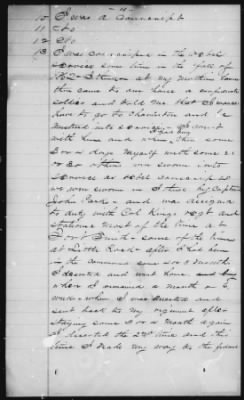 10 I was a Conscript
11 No
12 No
13 I was conscripted in the rebel
Service some time in the fall of
1862 I think at my mothers home
then came to our house a confederate
soldier and told me that I would
have to go to Charleston and be
mustered into service - I went
with him and then some
two or 3 days myself with some 25
or 30 others was sworn into
service as rebel conscripts
we were sworn in I think by Captain
John Park - and was assigned
to duty with Col Kings Regt and
stationed most of the time at
Fort Smith - some little time
at Little Rock - after I had been
in the command some two or 3 months
I deserted and went home
where I remained a month or
more - when I was arrested and
sent back to my regiment after
staying some 2 or 3 months again
I deserted the 2nd time and this
time I made my way to the federal